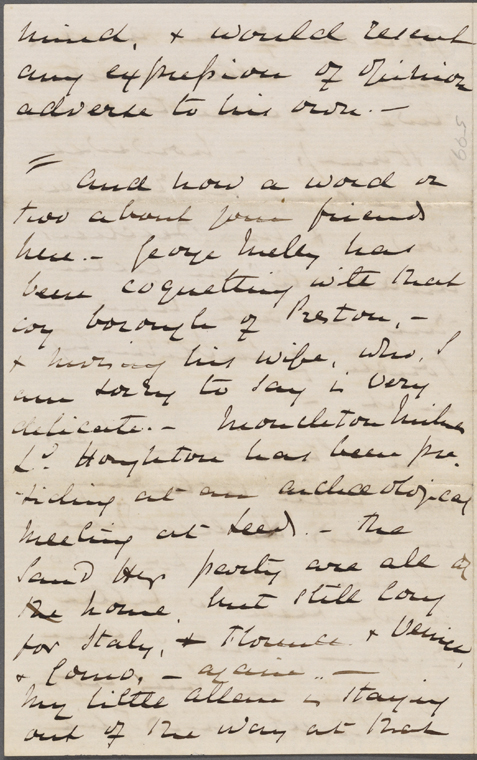 mind, & would resent
any expression of opinion
adverse to his own. —
= And now a word or
two about your friends
here. — George Melly has
been coquetting with that
icy borough of Preston, —
& nursing his wife, who, I
am sorry to say is very
delicate. — Monckton Milnes
Ld. Houghton has been pre-
siding at an archæological
meeting at Leeds. — The
party are all at
home, but still long
for Italy, & Florence & Venice,
& Como, — again. —
My little Allan is staying
out of the way at that